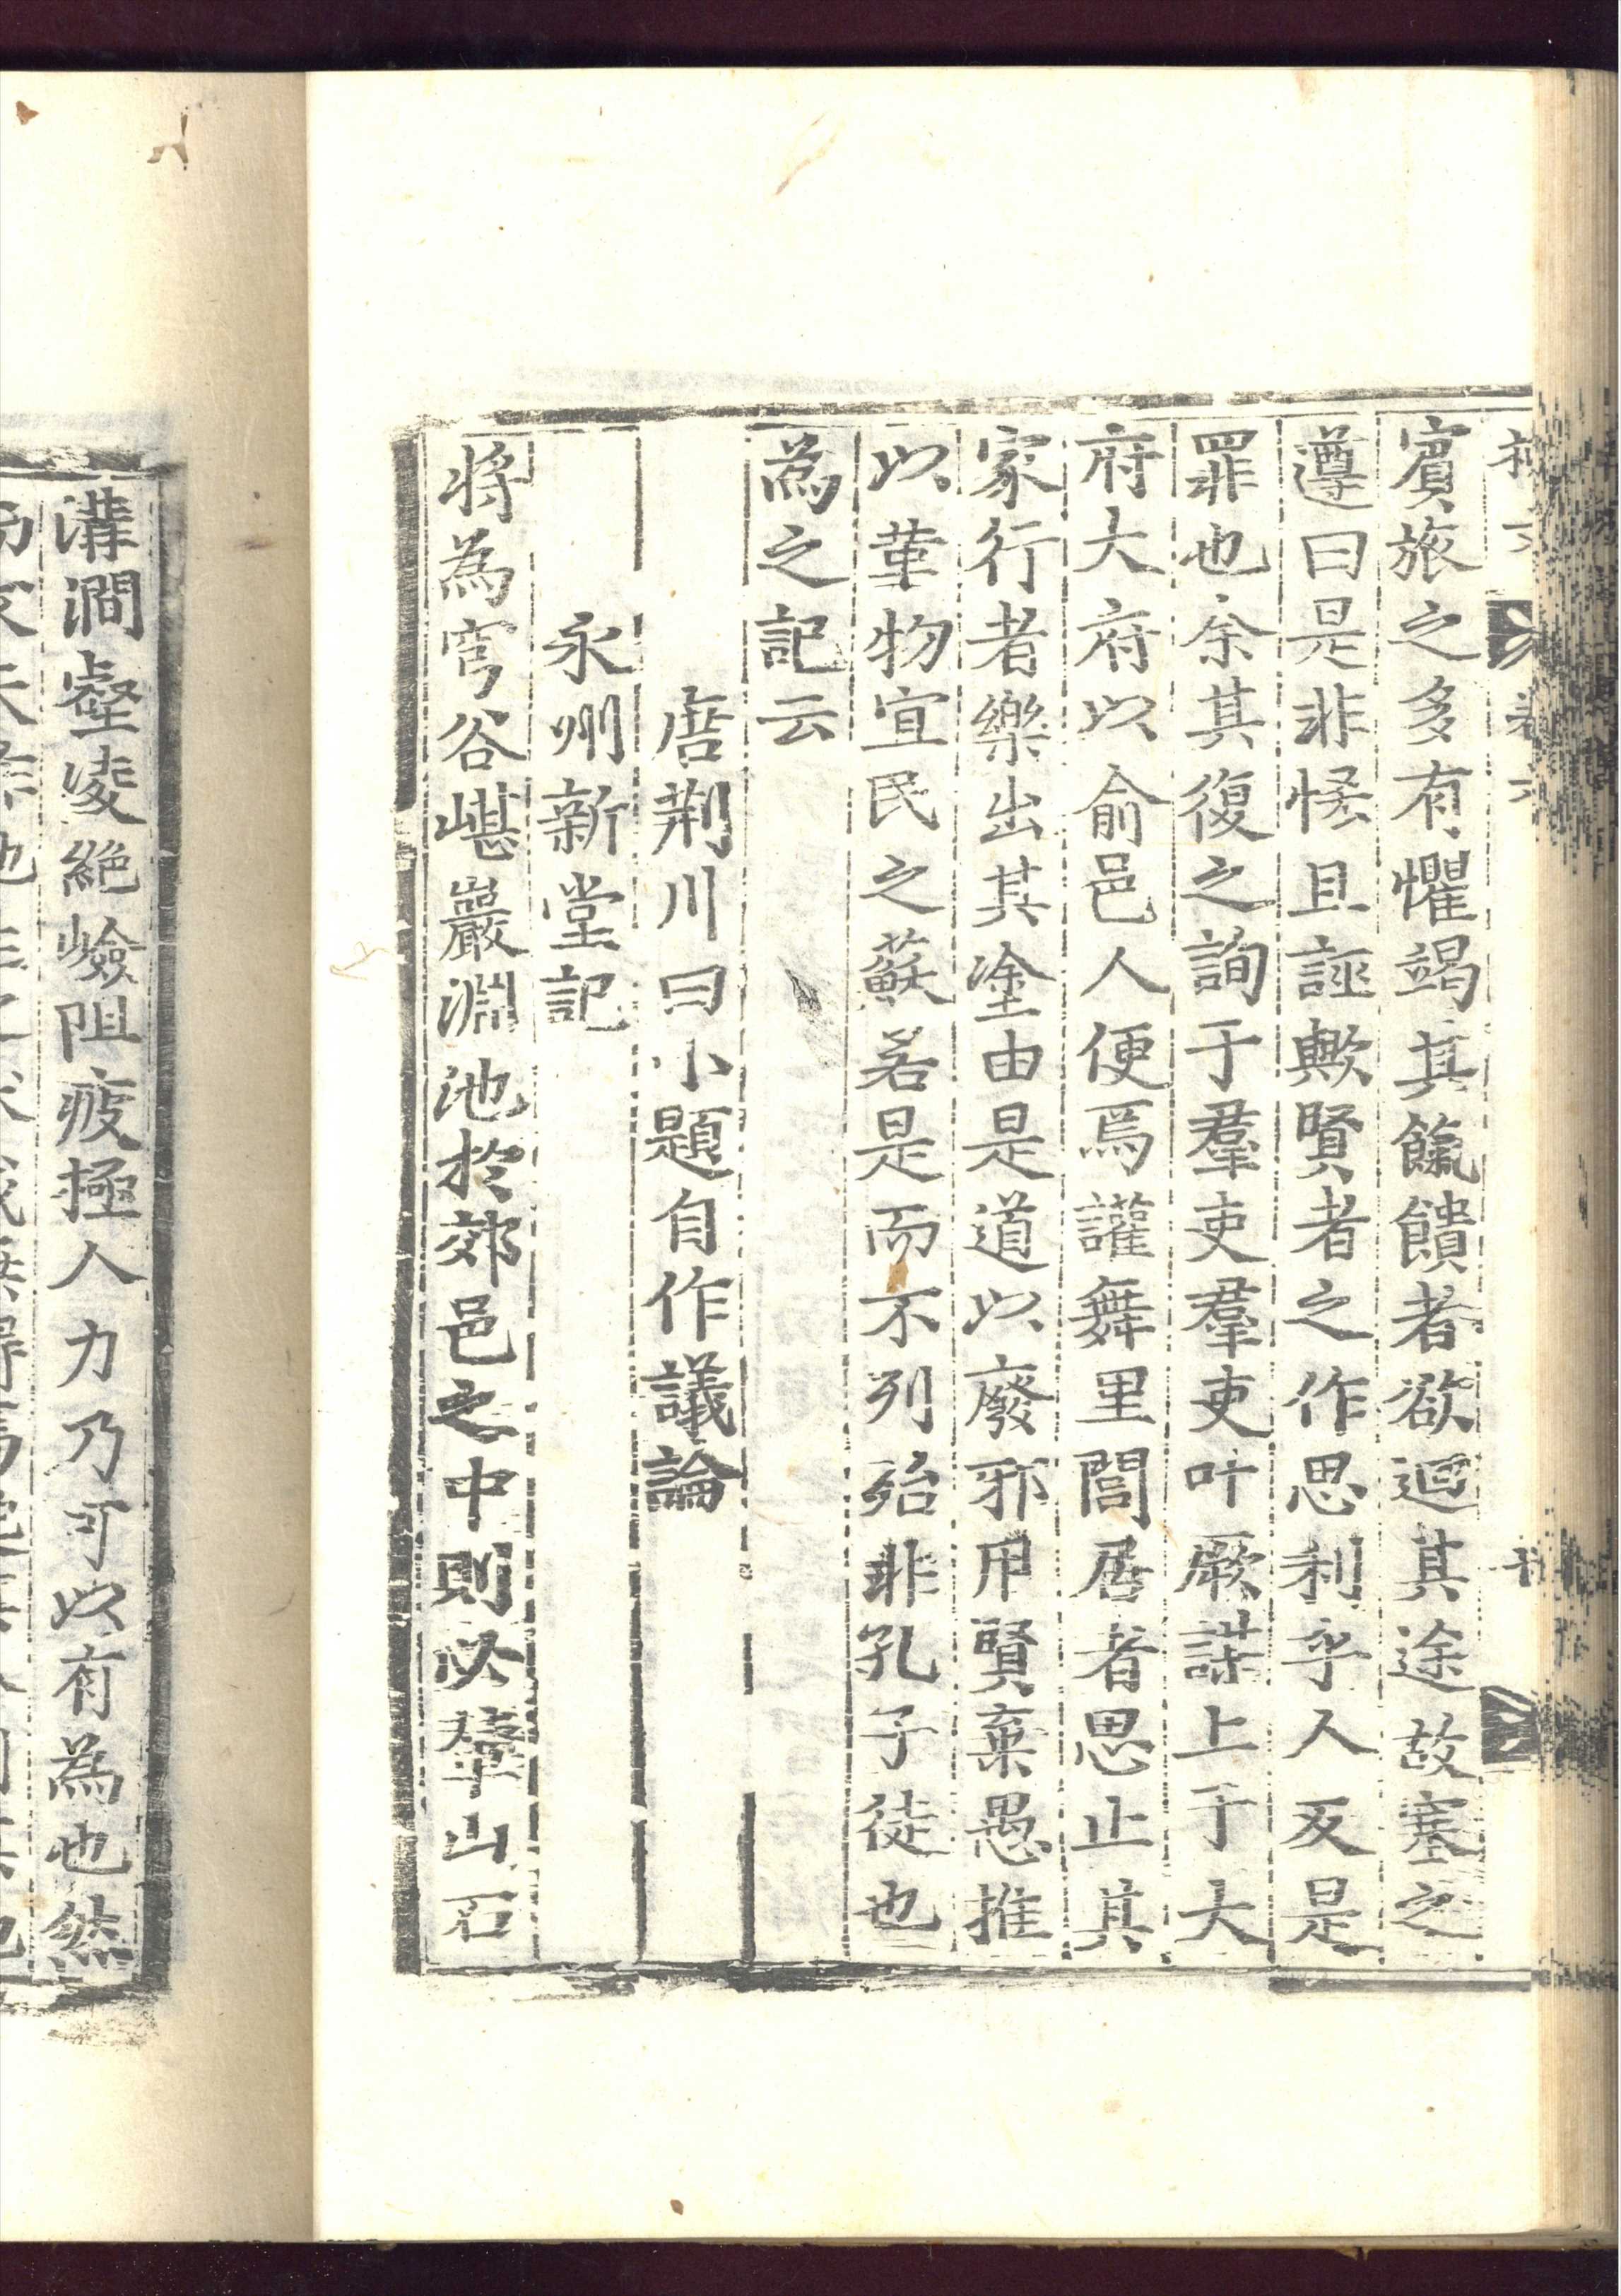 賓旅之多有懼竭其餼饋者欲迴其途故塞之
遵曰是非恡且誣歟賢者之作思利乎人反是
罪也余其復之詢于羣吏羣吏叶厥謀上于大
府大府以俞邑人便焉讙舞里閭居者思止其
家行者樂出其塗由是道以廢邪用賢棄愚推
以革物宜民之蘇若是而不列殆非孔子徒也
為之記云
唐荊川曰小題自作議論
永州新堂記
將為穹谷嵁巖淵池於郊邑之中則必輦山石
溝澗壑凌絕嶮阻疲極人力乃可以有為也然